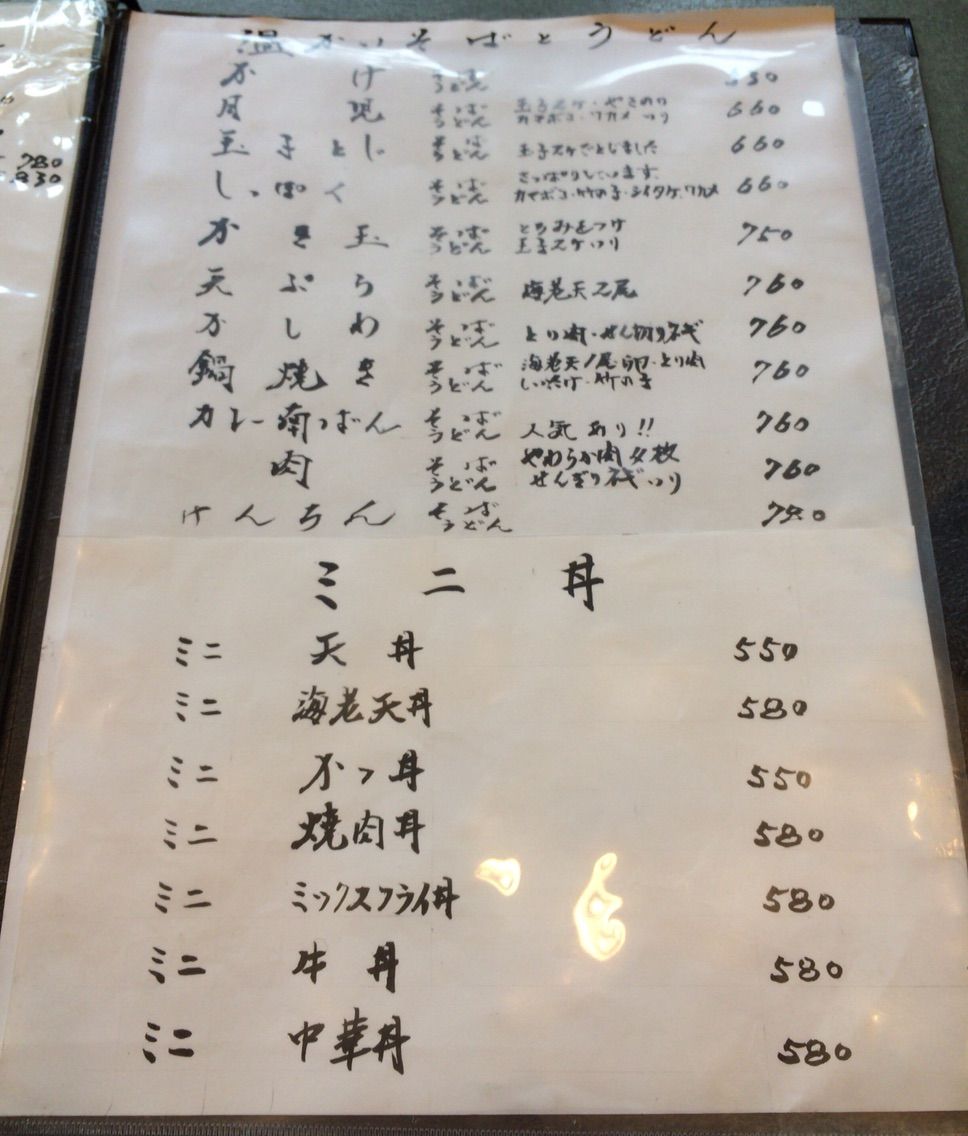 780
830
温かいそばとうどん
かけ そば うどん 550
月見 そば うどん 玉子スケ・やきのり カマボコ・ワカメ入り 660
玉子とじ そば うどん 玉子スケでとじました 660
しっぽく そば うどん さっぱりしています。 カマボコ・竹の子・シイタケ、ワカメ 660
かき玉 そば うどん とろみをつけ 玉子スケ入り 750
天ぷら そば うどん 海老天2尾 760
かしわ そば うどん とり肉・せん切りネギ 760
鍋焼き そば うどん 海老天1尾・卵・とり肉 しいたけ・竹の子 760
カレー南ばん そば うどん 人気あり!! 760
肉 そば うどん やわらか肉 枚 せんぎりネギ入り 760
けんちん そば うどん
ミニ丼
ミニ 天丼 550
ミニ 海老天丼 580
ミニ かつ丼 550
ミニ 焼肉丼 580
ミニ ミックスフライ丼 580
ミニ 牛丼 580
ミニ 中華丼 580